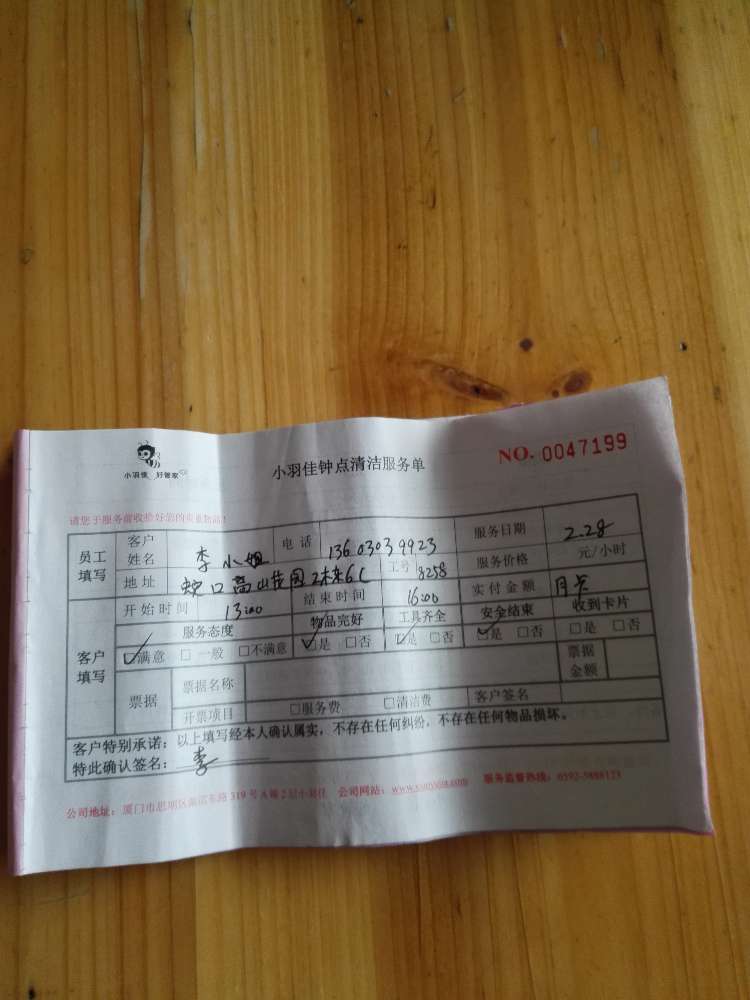 小羽佳 好管家
小羽佳钟点清洁服务单
NO. 0047199
请您于服务前收拾好您的贵重物品!
员工填写
客户姓名 李小姐 电话 13603039923 服务日期 2.28
地址 蛇口高山花园2栋6C 工号 8258 服务价格 元/小时
开始时间 13:00 结束时间 16:00 实付金额 月卡
客户填写
服务态度 物品完好 工具齐全 安全结束 收到卡片
☑满意 □一般 □不满意 ☑是 □否 ☑是 □否 ☑是 □否 □是 □否
票据 票据名称 票据金额
开票项目 □服务费 □清洁费 客户签名
客户特别承诺:以上填写经本人确认属实,不存在任何纠纷,不存在任何物品损坏。
特此确认签名: 李
公司地址:厦门市思明区 319号A栋2层小羽佳 公司网站: 服务监督热线:0592-5888123